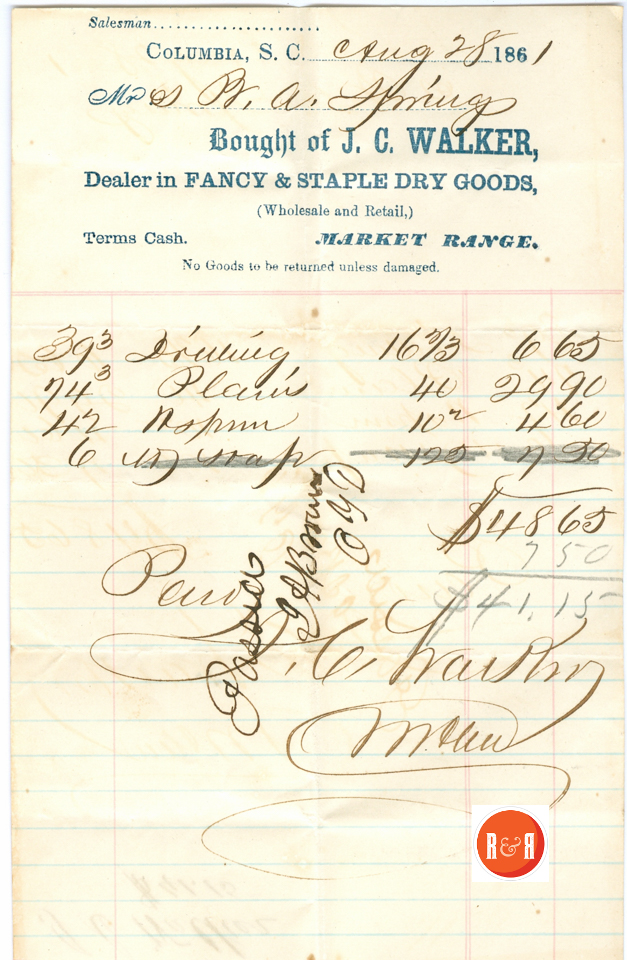 Salesman......................
COLUMBIA, S. C. Aug 28 1861
Mrs B. A. Springs
Bought of J. C. WALKER,
Dealer in FANCY & STAPLE DRY GOODS,
(Wholesale and Retail,)
Terms Cash. MARKET RANGE.
No Goods to be returned unless damaged.
39³ Drilling 16 2/3 6 65
74³ Plains 40 29 90
42 10² 4 60
6 125 7 50
$48 65
7 50
$41,15
Paid
J. C. Walker
Passed
R&R